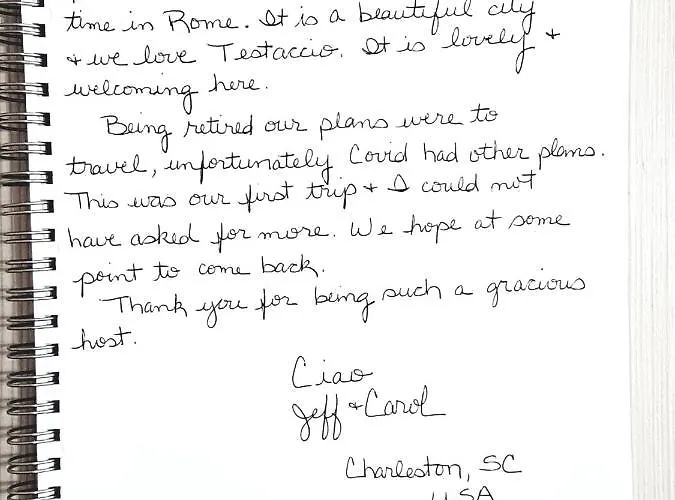 time in Rome. It is a beautiful city
+ we love Testaccio. It is lovely +
welcoming here.
Being retired our plans were to
travel, unfortunately Covid had other plans.
This was our first trip + I could not
have asked for more. We hope at some
point to come back.
Thank you for being such a gracious
host.
Ciao
Jeff + Carol
Charleston, SC
USA